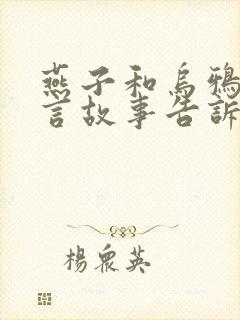 燕子和烏鴉
言故事告訴
楊眾英